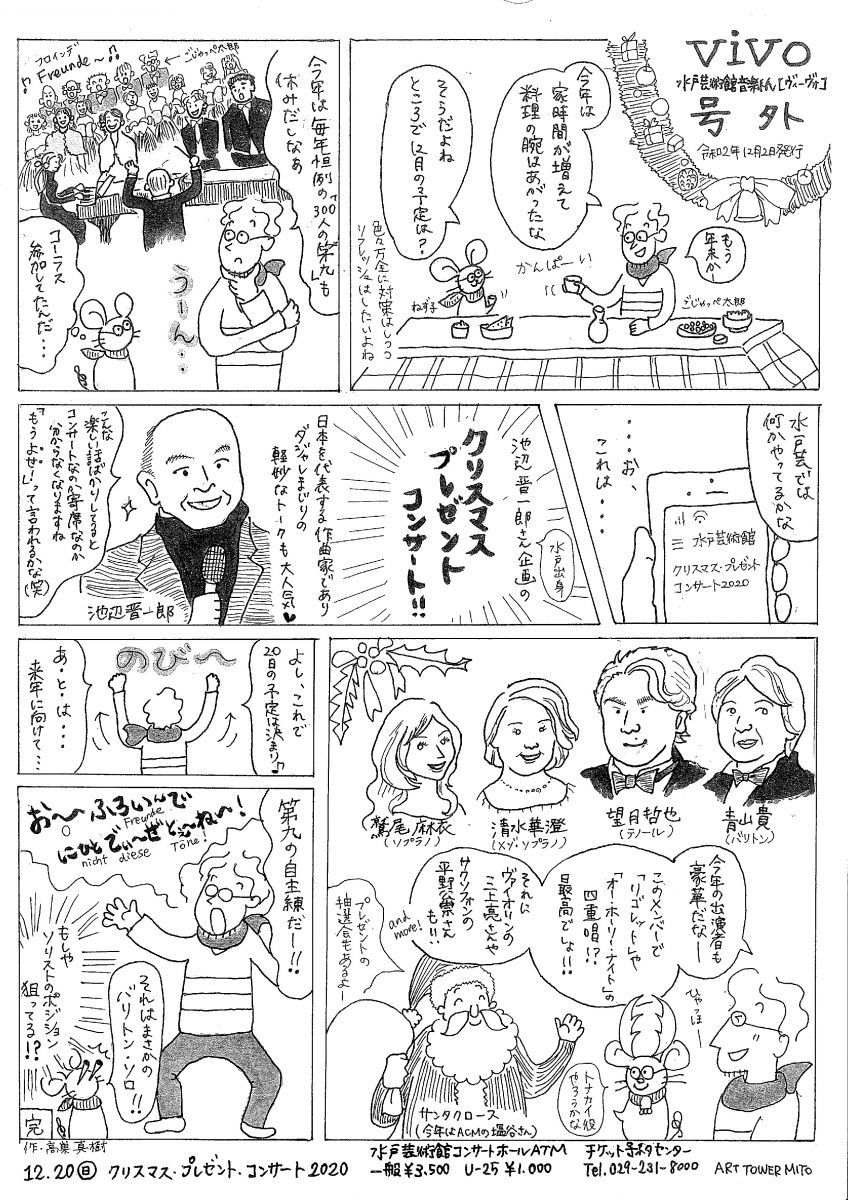 vivo
水戸芸術館音楽紙[ヴィーヴォ]
号外
令和2年12月2日発行
もう
年末かー
今年は
家時間が増えて
料理の腕はあがったな
かんぱーい!
ごじゃっぺ太郎
ねず子
そうだよね
ところで12月の予定は?
色々万全に対策はしつつ
リフレッシュはしたいよね
フロインデ
♫ Freunde~♫
ごじゃっぺ太郎
今年は毎年恒例の「300人の第九」も
休みだしなぁ
うーん・・
コーラス
参加してたんだ・・・
水戸芸では
何かやってるかな
・・・・お、
これは・・・
水戸芸術館
クリスマス・プレゼント
コンサート2020
水戸出身
池辺晋一郎さん企画の
クリスマス
プレゼント
コンサート!!
日本を代表する作曲家であり
ダジャレまじりの
軽妙なトークも大人気♥
池辺晋一郎
こんな
楽しい話ばかりしてると
コンサートなのか寄席なのか
分からなくなりますね
「もうよせ!」って言われるかな(笑)
青山貴
(バリトン)
望月哲也
(テノール)
清水華澄
(メゾ・ソプラノ)
鷲尾麻衣
(ソプラノ)
今年の出演者も
豪華だなー
このメンバーで
「リゴレット」や
「オー・ホーリー・ナイト」の
四重唱!?
最高でしょ!!
それに
ヴァイオリンの
三上亮さんや
サクソフォンの
平野公崇さん
も!!
and
more!
プレゼントの
抽選会もあるよー
ひゃっほー
トナカイ役
やろうかな
サンタクロース
(今年はACMの塩谷さん)
よし、これで
20日の予定は決まり♪
のび~
あ・と・は・・・
来年に向けて・・・
第九の自主練だー!!
おー ふろいんで
Freunde
にひと でぃーぜ とーねー!
nicht diese Töne!
それはまさかの
バリトン・ソロ!!
もしや
ソリストのポジション
狙ってる!?
完
作・高巣真樹
12.20(日) クリスマス・プレゼント・コンサート2020
水戸芸術館コンサートホールATM
一般¥3,500 U-25 ¥1,000
チケット予約センター
Tel.029-231-8000
ART TOWER MITO